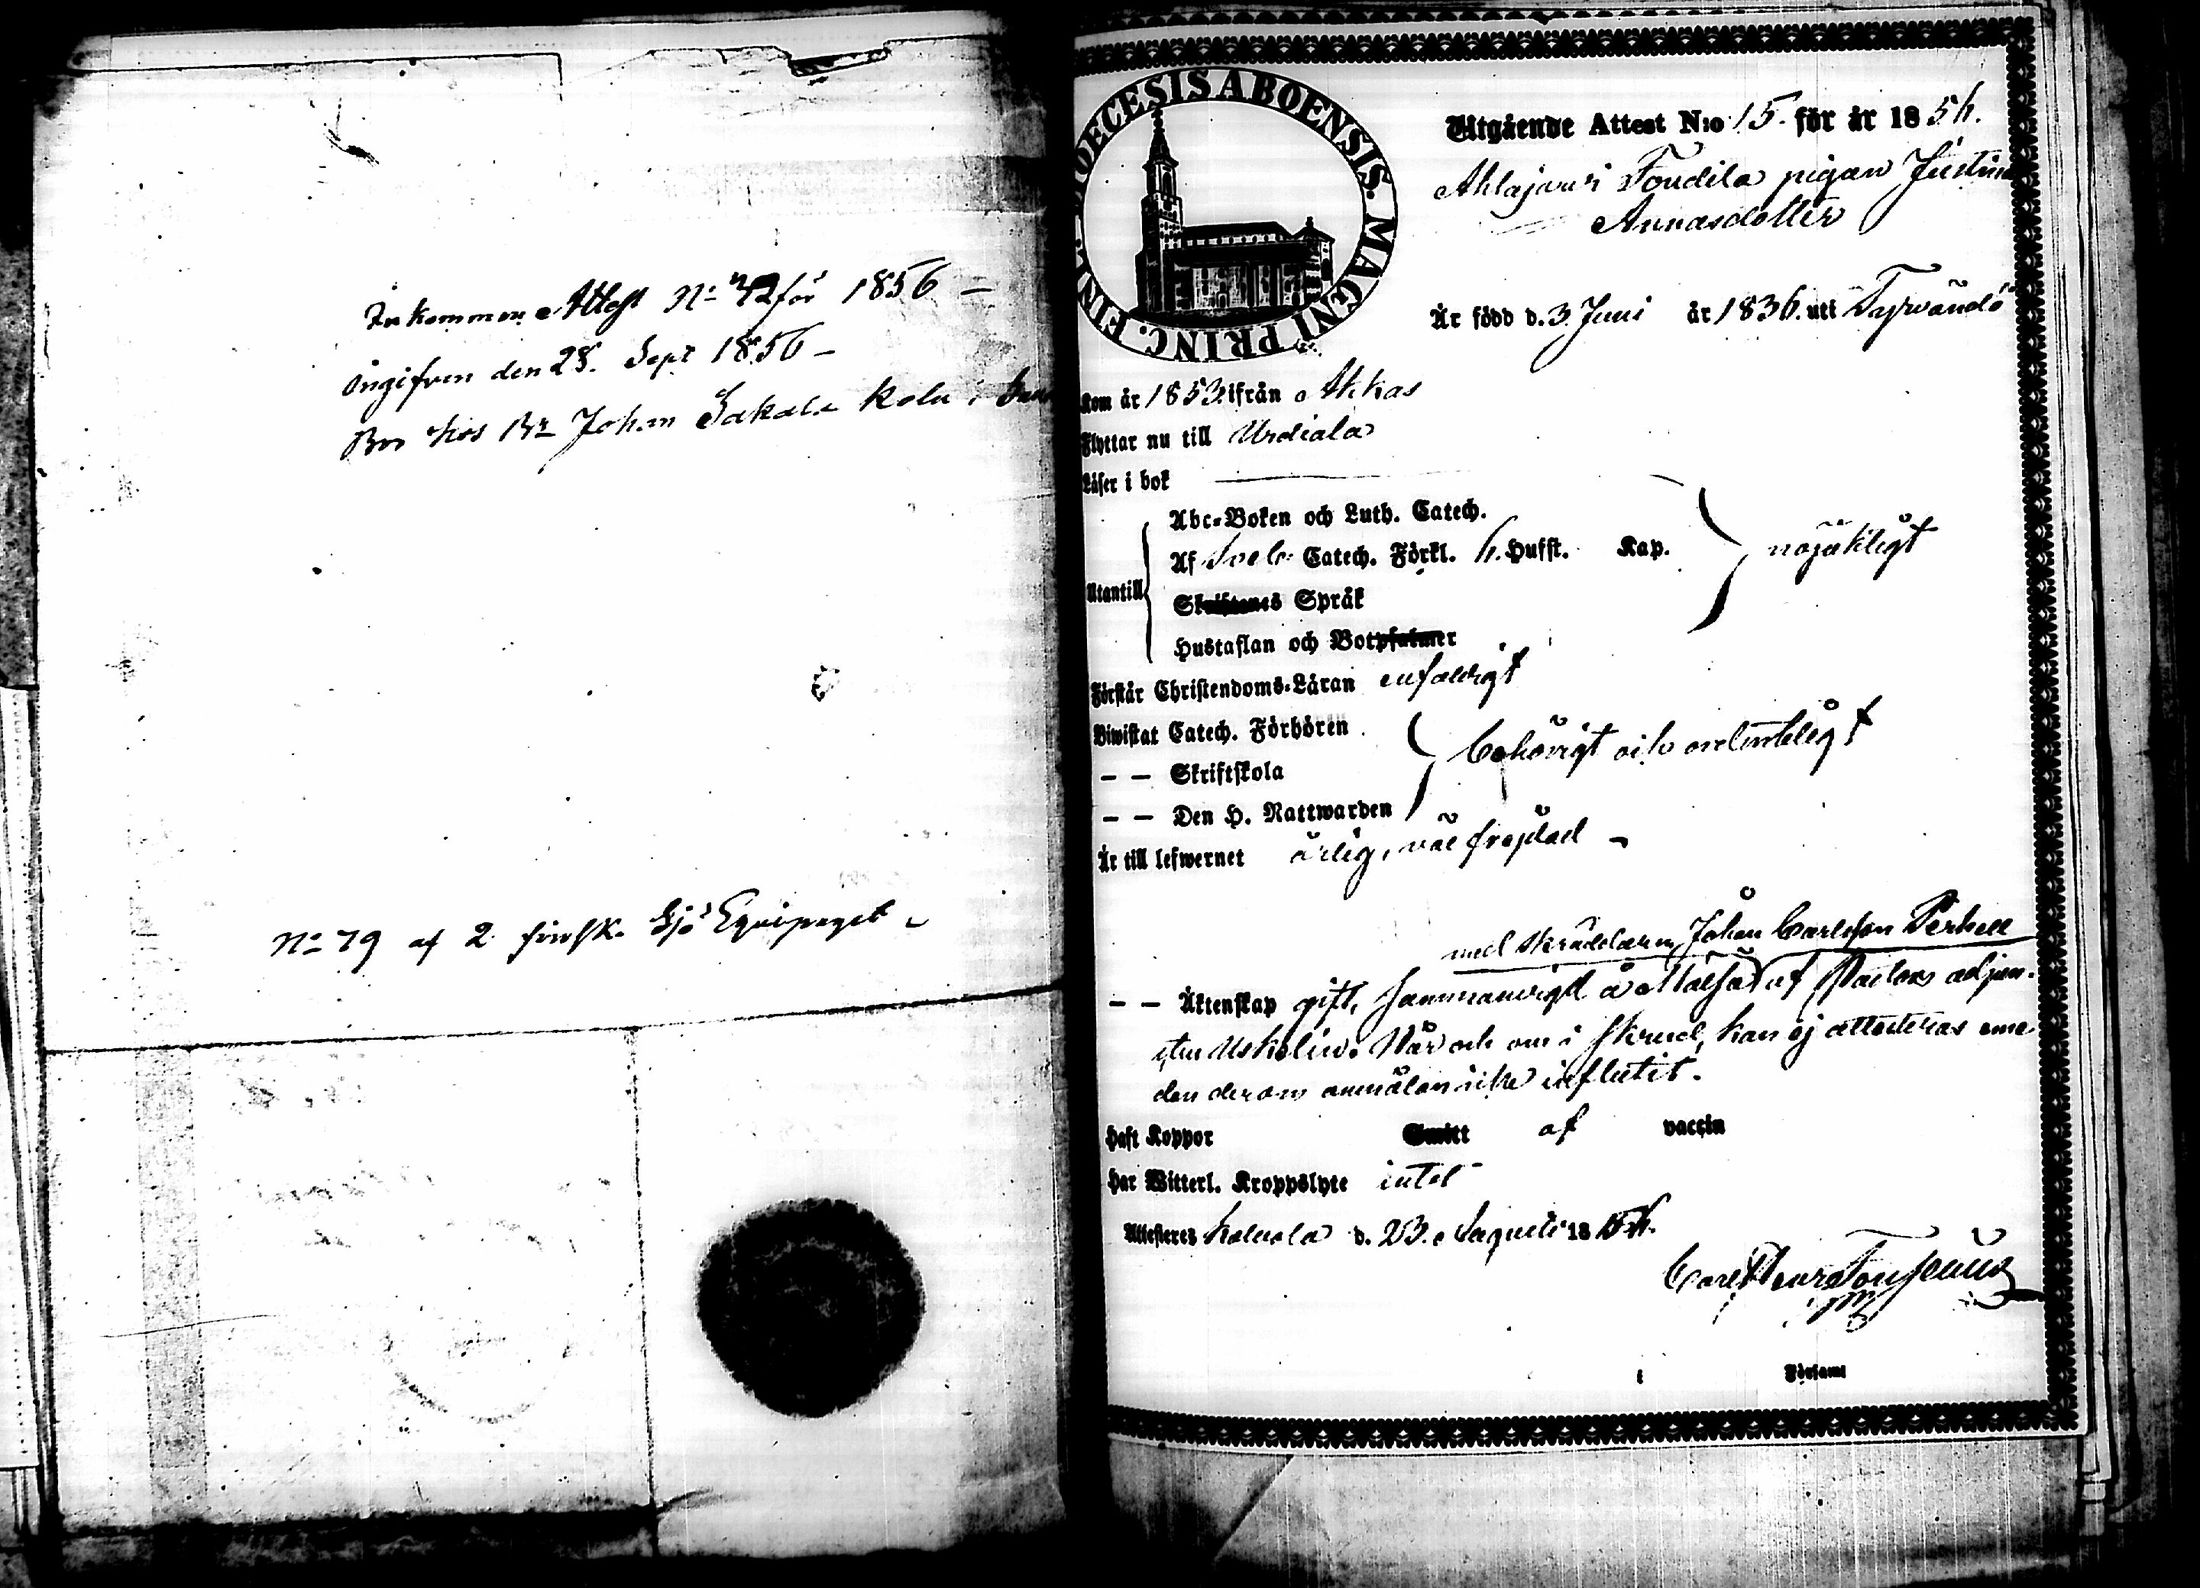 Inkommen Attest No 42 för 1856 —
Ingifven den 28. Sept 1856 —
Bor hos Bn Johan Kolu i
No 79 af 2 finsk. Sjö Equipaget
DIOECESIS ABOENSIS. MAGNI PRINC. FINL.
Utgående Attest N:o 15. för år 1854.
Ahlajouri Toudila pigan Justina
Annasdotter
Är född d. 3 Juni år 1836. uti Tyrvändö
Kom år 1853 ifrån Akkas
Flyttar nu till Urdiala
Läser i bok
Abc-Boken och Luth. Catech.
Utantill Af Sveb: Catech. Förkl. 4. Hufst. Kap. nöjaktligt
Skriftenes Språk
Hustaflan och Botpsalmer
Förstår Christendoms-Läran enfaldigt
Biwistat Catech. Förhören
— — Skriftskola behörigt och ordentligt
— — Den H. Nattwarden
Är till lefwernet ärlig, väl frejdad —
med skräddaren Johan Carlsson Perhell
— — Äktenskap gift, sammanvigd å af Pastors adjunk-
ten Uskelin. När och om i skrud, kan ej attesteras eme-
dan derom anmälan icke influtit.
Haft Koppor Smitt af vaccin
Har Witterl. Kroppslyte intet
Attesteras Kolvola d. 23. Augusti 1854.
Carl
i Församl